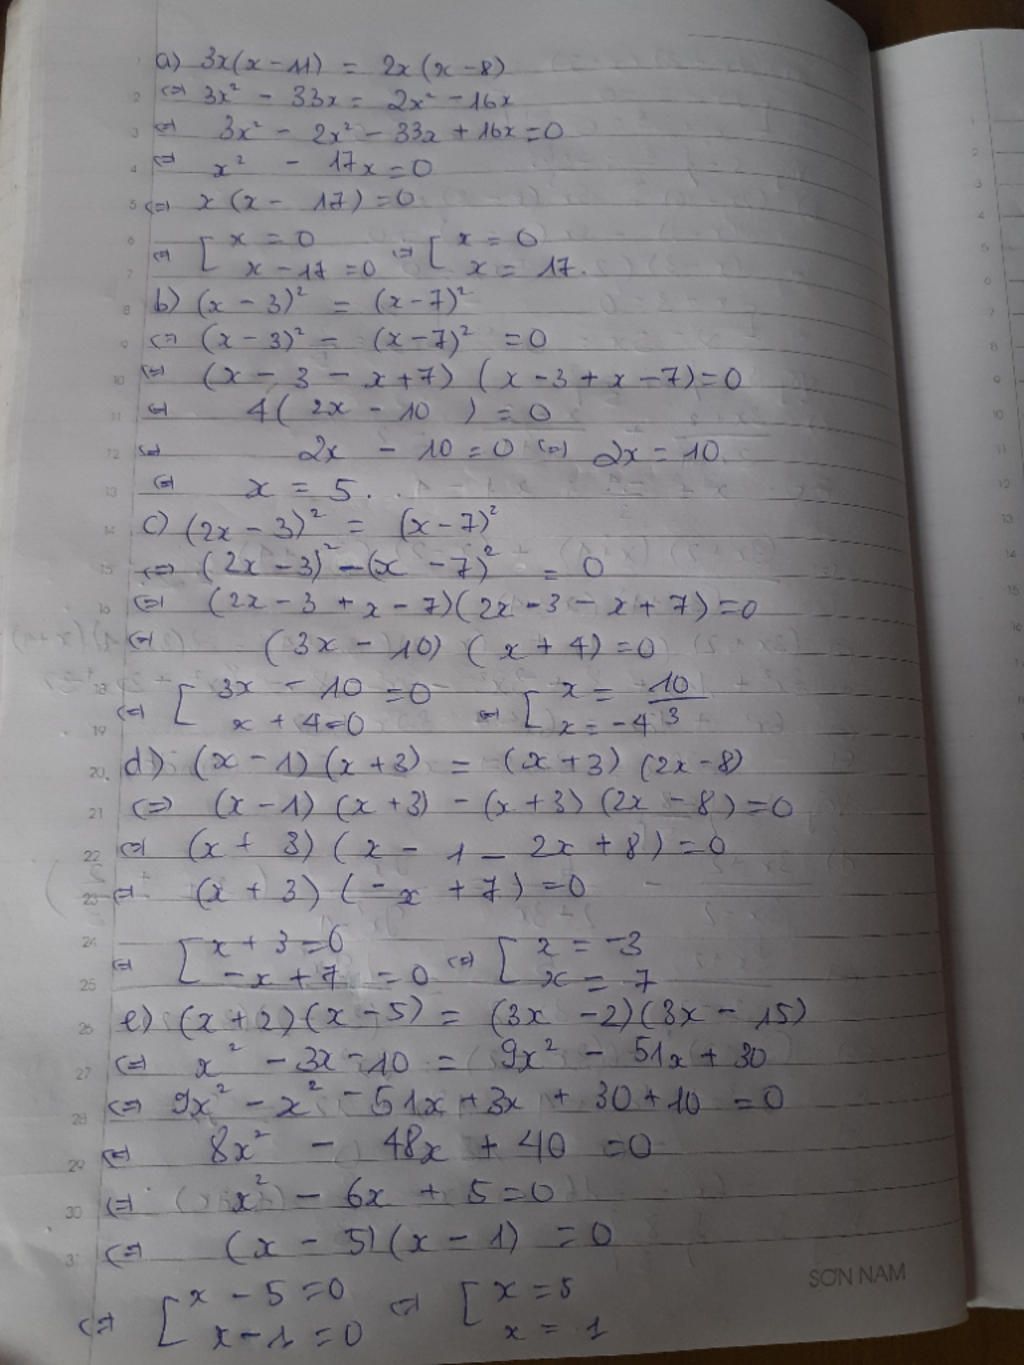 a) 3x(x-11) = 2x(x-8)
<=> 3x² - 33x = 2x² - 16x
<=> 3x² - 2x² - 33x + 16x = 0
<=> x² - 17x = 0
<=> x(x - 17) = 0
<=> [ x = 0 <=> [ x = 0
x - 17 = 0 x = 17.
b) (x - 3)² = (x-7)²
<=> (x - 3)² - (x-7)² = 0
<=> (x - 3 - x+7) (x-3+x-7)=0
<=> 4( 2x - 10 ) = 0
<=> 2x - 10 = 0 <=> 2x = 10
<=> x = 5.
c) (2x - 3)² = (x-7)²
<=> (2x-3)² - (x-7)² = 0
<=> (2x - 3 + x - 7)(2x-3-x+7)=0
<=> (3x - 10) (x + 4) = 0
<=> [ 3x - 10 = 0 <=> [ x = 10/3
x + 4=0 x = -4
d) (x - 1)(x+3) = (x+3) (2x-8)
<=> (x-1) (x+3) - (x+3) (2x-8)=0
<=> (x + 3) (x - 1 - 2x + 8) = 0
<=> (x + 3) (-x + 7) = 0
<=> [ x + 3 = 0 <=> [ x = -3
-x + 7 = 0 x = 7
e) (x+2)(x-5) = (3x -2)(3x - 15)
<=> x² - 3x - 10 = 9x² - 51x + 30
<=> 9x² - x² - 51x + 3x + 30 + 10 = 0
<=> 8x² - 48x + 40 = 0
<=> x² - 6x + 5 = 0
<=> (x - 5)(x - 1) = 0
SƠN NAM
<=> [ x - 5 = 0 <=> [ x = 5
x - 1 = 0 x = 1